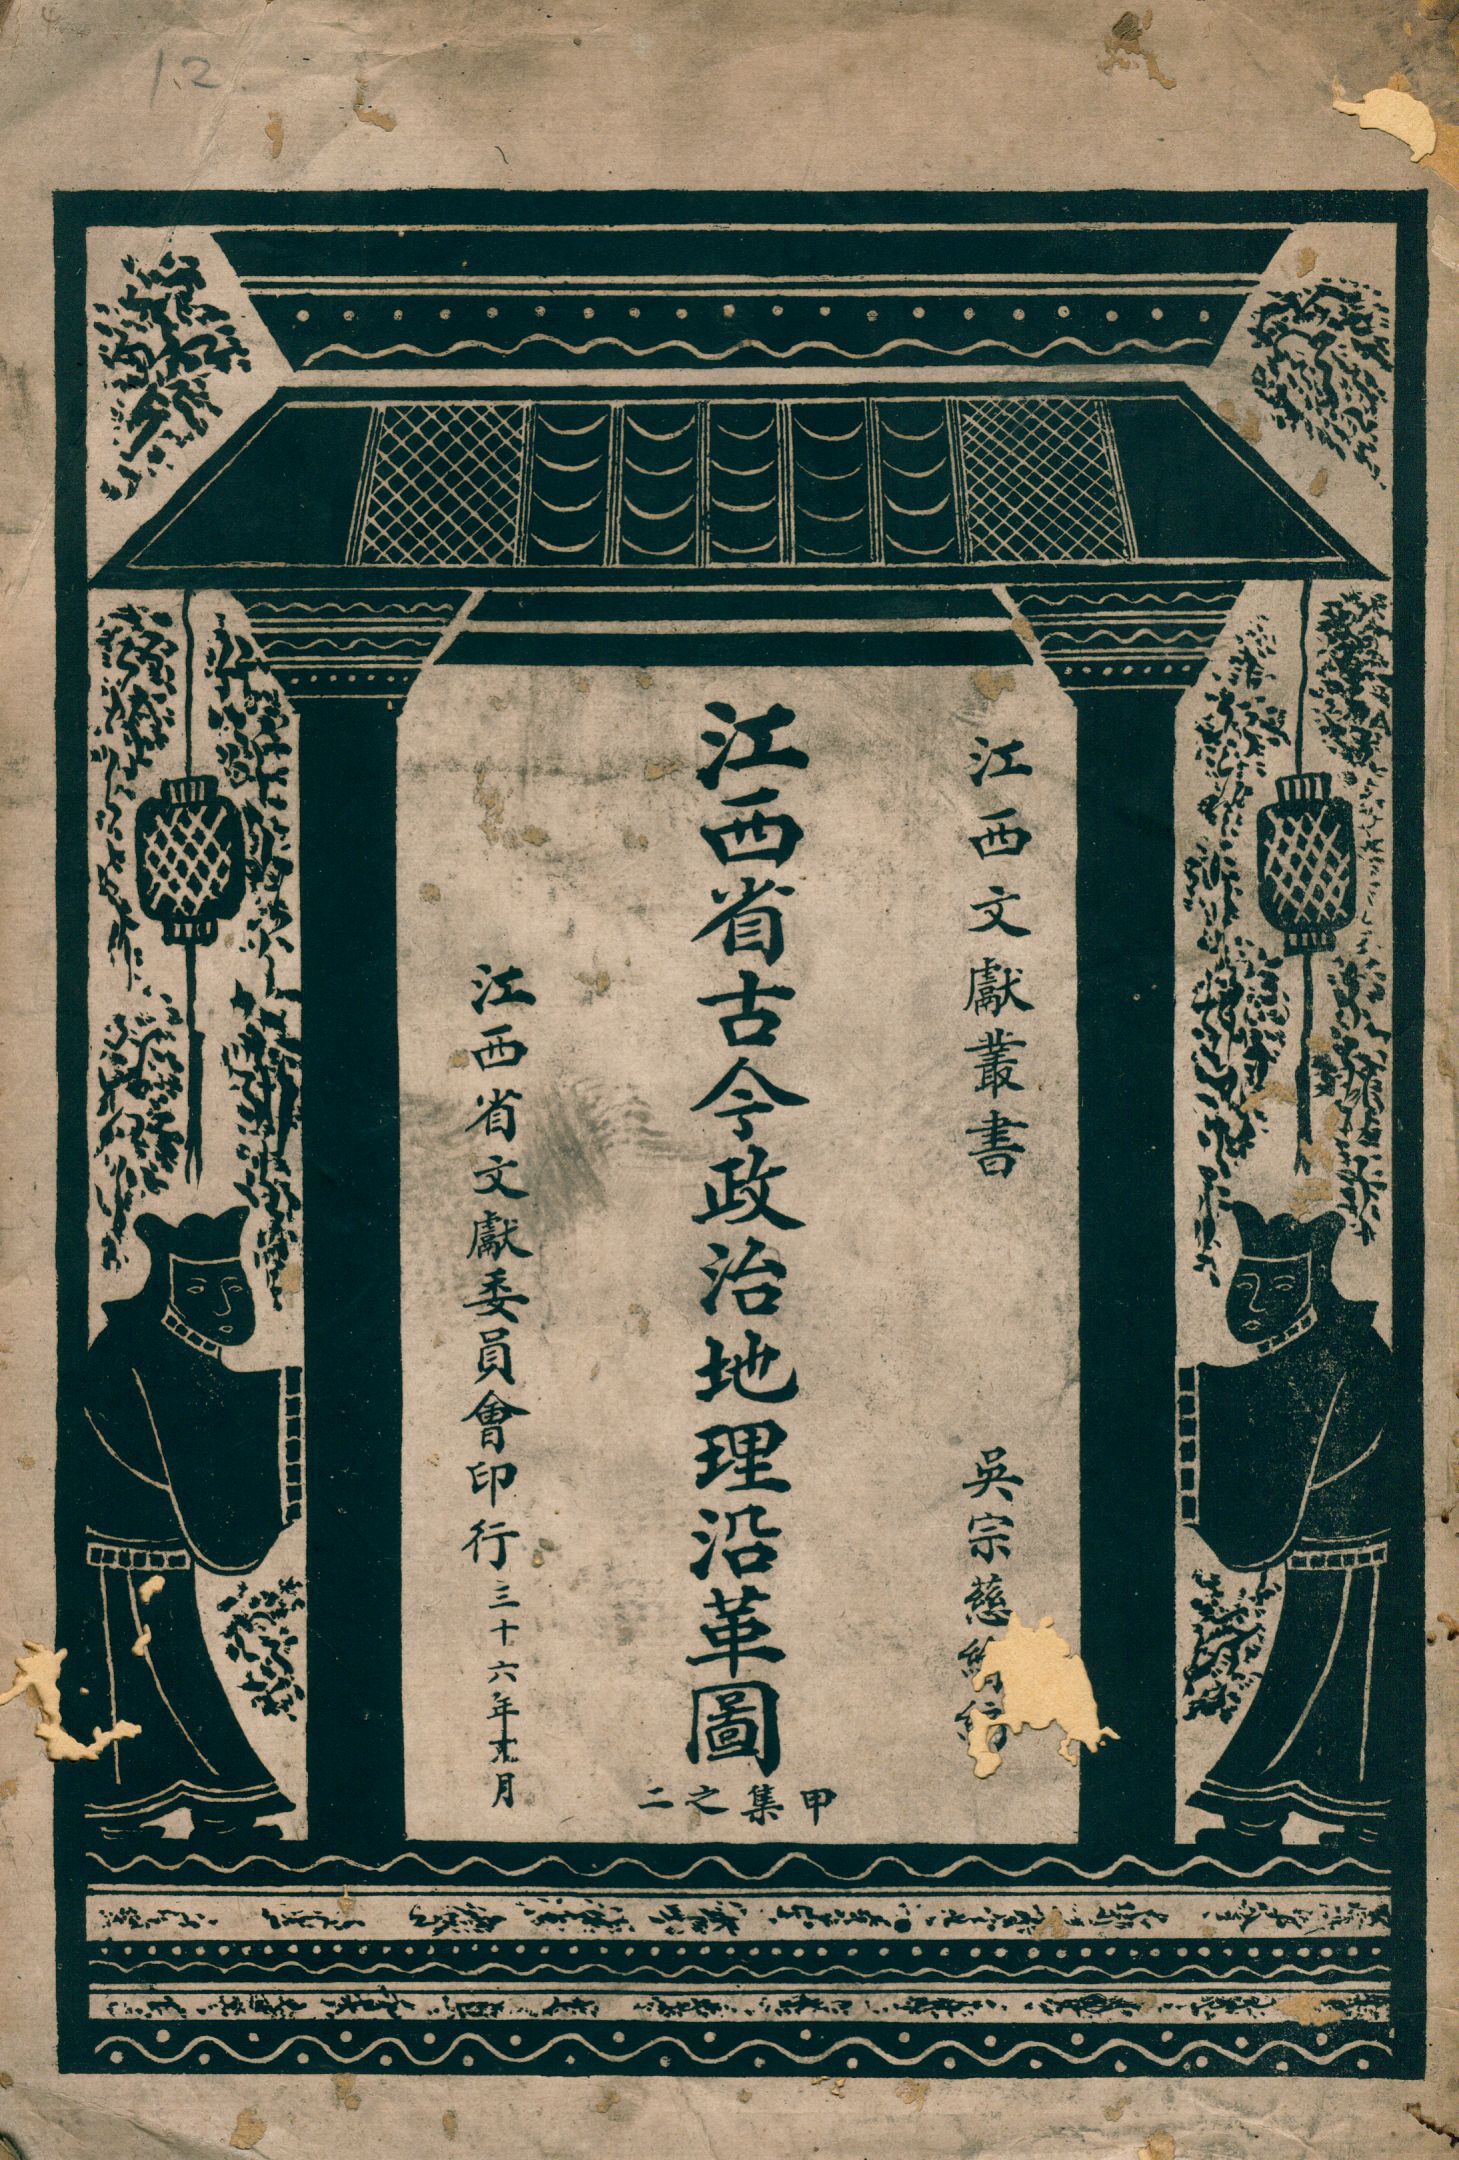 12
江西文獻叢書
吳宗慈
江西省古今政治地理沿革圖
甲集之二
江西省文獻委員會印行 三十六年 月